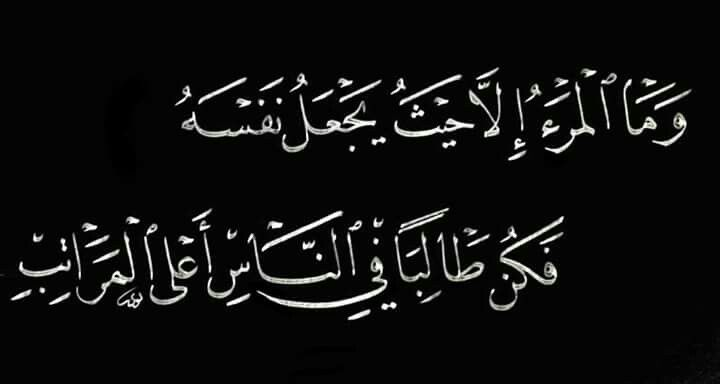 وَمَا ٱلْمَرْءُ إِلَّا حَيْثُ يَجْعَلُ نَفْسَهُ
فَكُنْ طَالِبًا فِي ٱلنَّاسِ أَعْلَى ٱلْمَرَاتِبِ